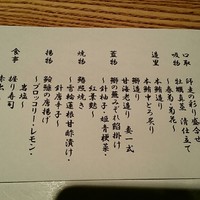 口取 季節の彩り盛合せ
吸物 牡蠣真薯 清仕立て
～春菊・菊花～
造里 本鮪造り
本鮪中とろ炙り
鰤造り
甘海老造り 妻一式
蓋物 鰤の蕪みぞれ餡掛け
～針柚子・姫青梗菜・
紅葉麩～
焼物 鰆照焼き
～雪輪蓮根甘酢漬け・
針唐辛子～
揚物 鮟鱇の唐揚げ
～ブロッコリー・レモン・
岩塩～
食事 握り寿司